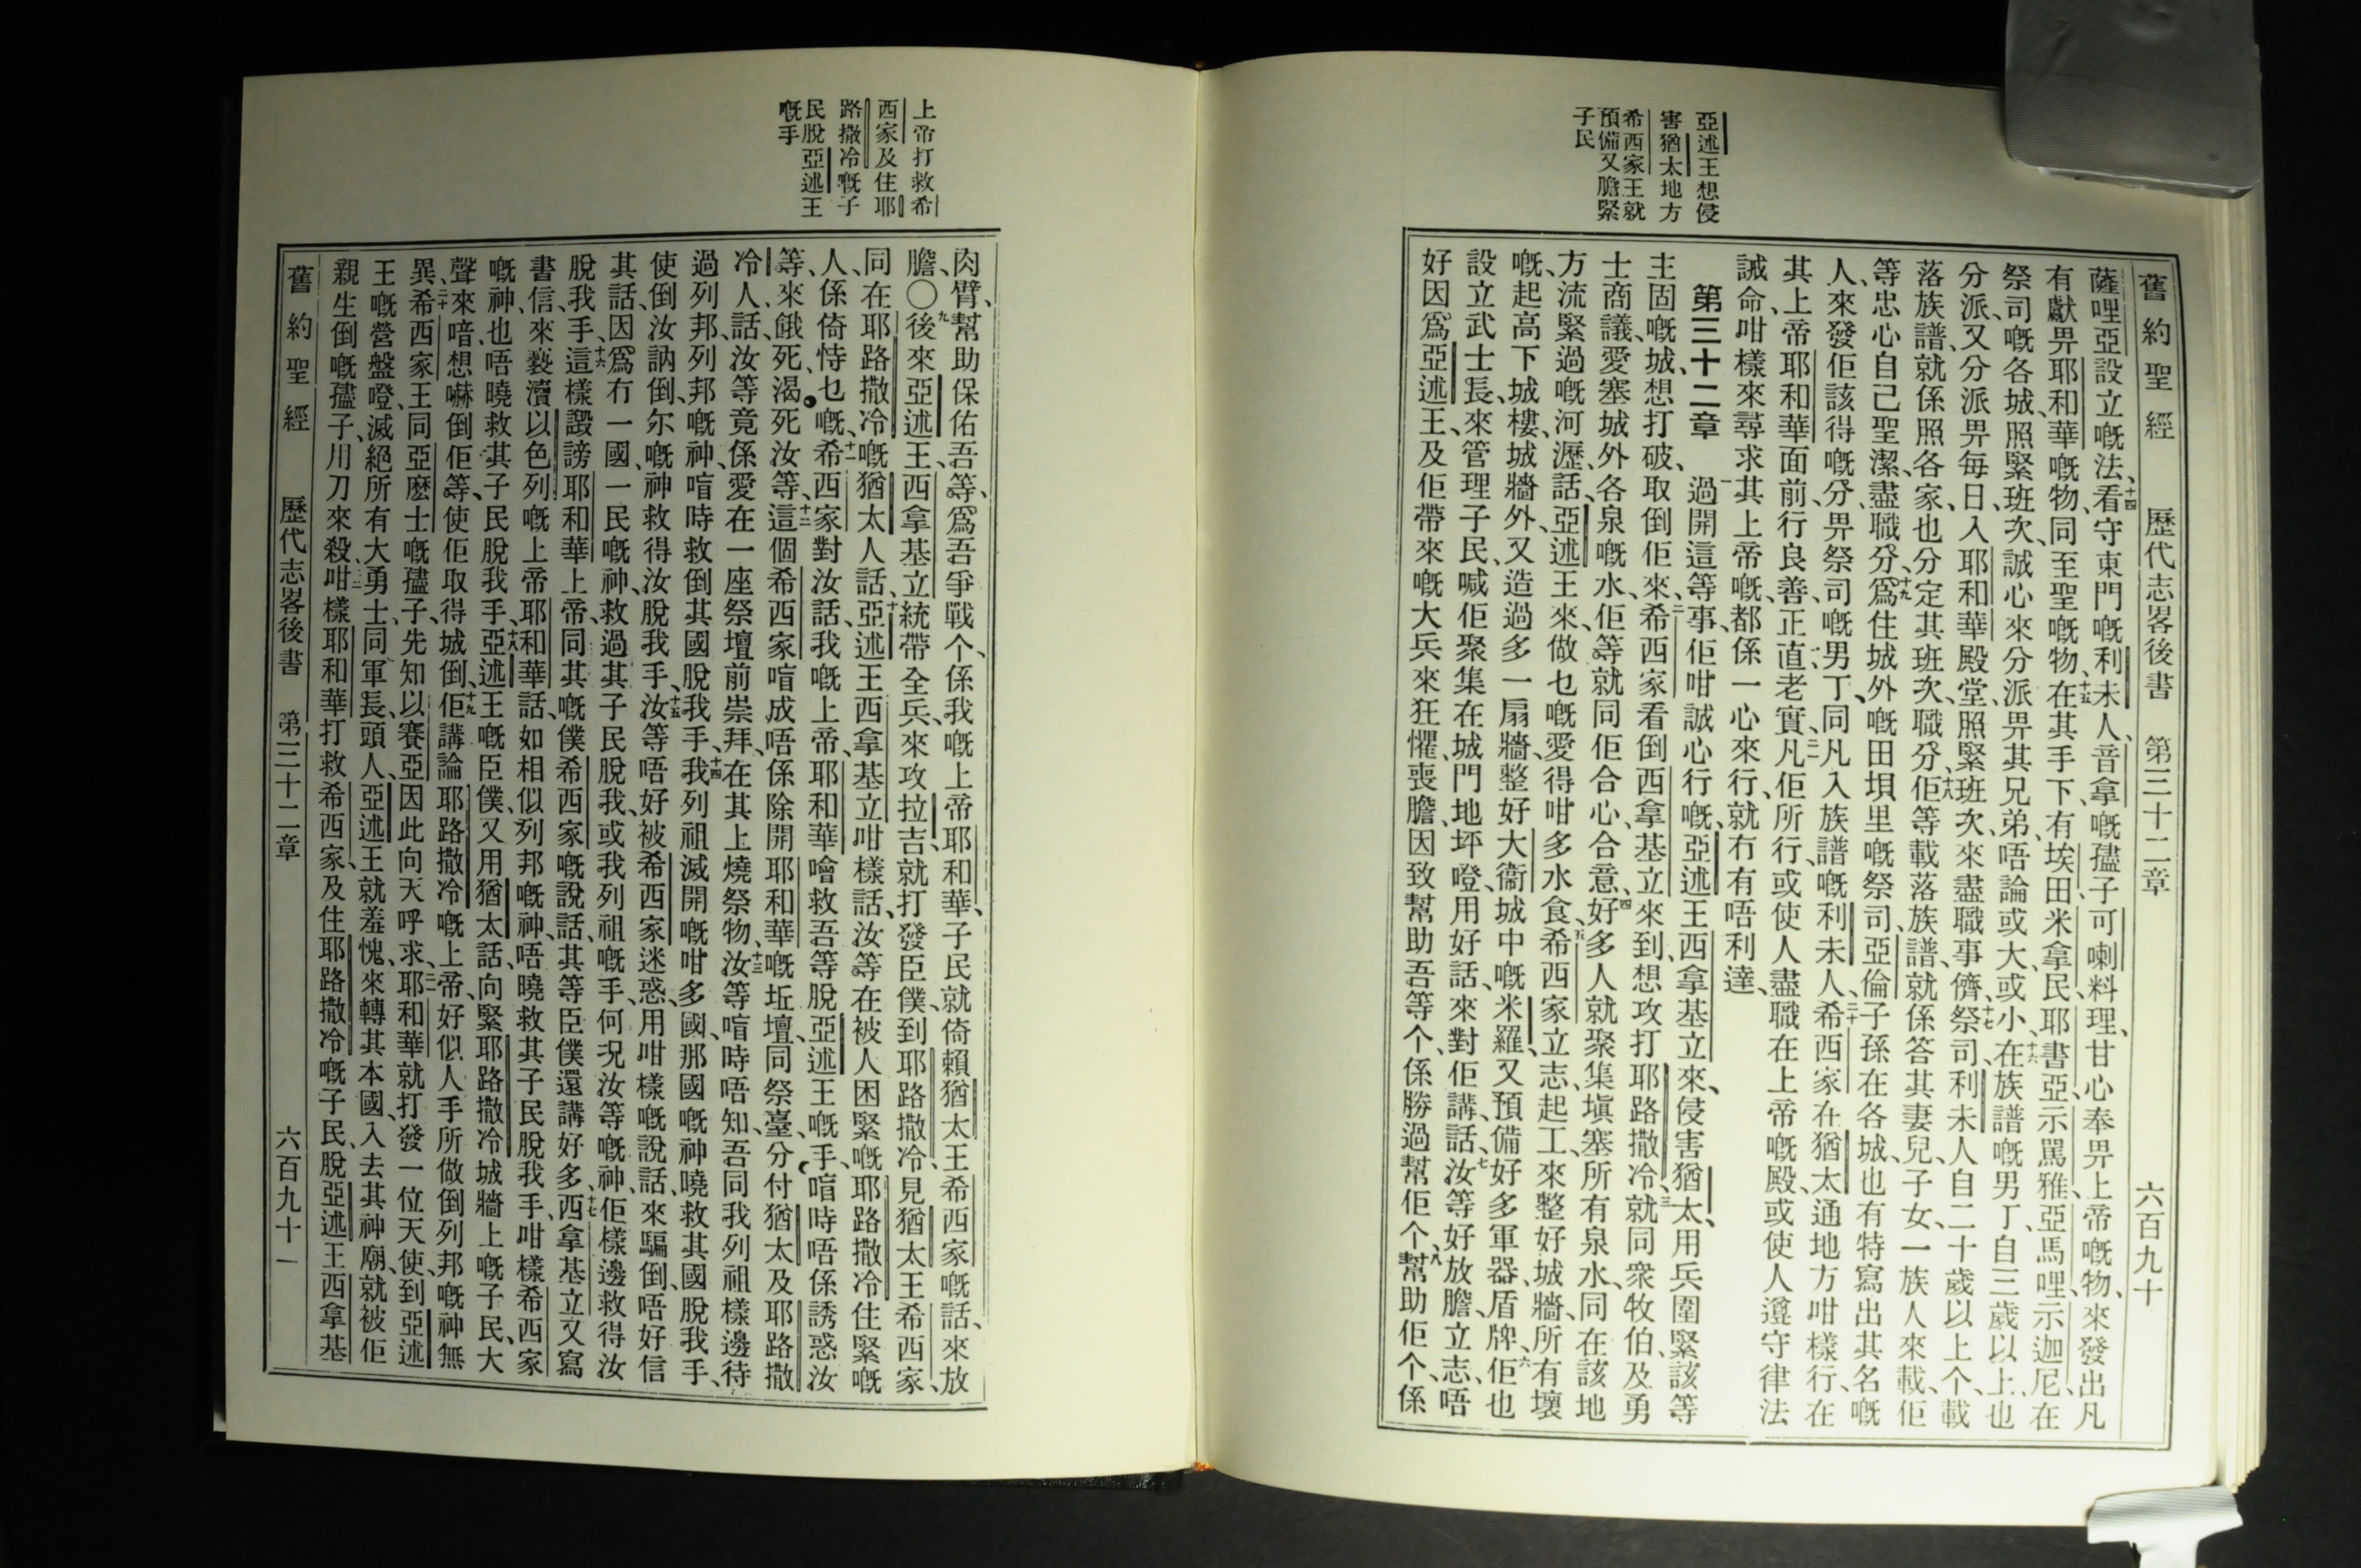 舊約聖經 歷代志畧後書 第三十二章 六百九十
亞述王想侵
害猶太地方
希西家王就
預備又膽緊
子民
薩哩亞設立嘅法、十四看守東門嘅利未人、音拿嘅孻子可喇料理、甘心奉畀上帝嘅物、來發出凡
有獻畀耶和華嘅物、同至聖嘅物、十五在其手下、有埃田米拿民、耶書亞、示罵雅、亞馬哩、示迦尼、在
祭司嘅各城、照緊班次、誠心來分派畀其兄弟、唔論或大、或小、十六在族譜嘅男丁、自三歲以上、也
分派、又分派畀每日、入耶和華殿堂、照緊班次、來盡職事儕、十七祭司、利未人自二十歲以上个、載
落族譜、就係照各家、也分定其班次、職分、十八佢等載落族譜、就係答其妻兒、子女、一族人來載、佢
等忠心自己聖潔、盡職分、十九爲住城外嘅田垻里嘅祭司、亞倫子孫在各城、也有特寫出其名嘅
人、來發佢該得嘅分、畀祭司嘅男丁、同凡入族譜嘅利未人、二十希西家在猶太通地方咁樣行、在
其上帝耶和華面前、行良善、正直老實、二一凡佢所行、或使人盡職在上帝嘅殿、或使人遵守律法
誡命、咁樣來尋求其上帝嘅、都係一心來行、就冇有唔利達、
第三十二章 一過開這等事、佢咁誠心行嘅、亞述王西拿基立來、侵害猶太、用兵圍緊該等
主固嘅城、想打破、取倒佢來、二希西家看倒西拿基立來到、想攻打耶路撒冷、三就同衆牧伯、及勇
士商議、愛塞城外各泉嘅水、佢等就同佢合心、合意、四好多人就聚集塡塞所有泉水、同在該地
方流緊過嘅河瀝、話、亞述王來、做乜嘅、愛得咁多水食、五希西家立志、起工、來整好城牆、所有壞
嘅、起高下城樓、城牆外、又造過多一扇牆、整好大衞城中嘅米羅、又預備好多軍器、盾牌、六佢也
設立武士長、來管理子民、喊佢聚集在城門地坪噔、用好話、來對佢講、話、七汝等好放膽、立志、唔
好因爲亞述王、及佢帶來嘅大兵來狂懼、喪膽、因致幫助吾等个、係勝過幫佢个、八幫助佢个、係
上帝打救希
西家及住耶
路撒冷嘅子
民脫亞述王
嘅手
肉臂、幫助保佑吾等、爲吾爭戰个、係我嘅上帝耶和華、子民就倚賴猶太王希西家嘅話、來放
膽、〇九後來亞述王、西拿基立統帶全兵、來攻拉吉、就打發臣僕到耶路撒冷、見猶太王希西家、
同在耶路撒冷嘅猶太人話、十亞述王西拿基立咁樣話、汝等在被人困緊嘅耶路撒冷住緊嘅
人、係倚恃乜嘅、十一希西家對汝話、我嘅上帝、耶和華噲救吾等脫亞述王嘅手、唷時唔係誘惑汝
等、來餓死、渴死汝等、十二這個希西家唷成唔係除開耶和華嘅坵壇、同祭臺、分付猶太及耶路撒
冷人、話、汝等竟係愛在一座祭壇前崇拜、在其上燒祭物、十三汝等唷時唔知、吾同我列祖樣邊待
過列邦、列邦嘅神、唷時救倒其國脫我手、十四我列祖滅開嘅咁多國、那國嘅神曉救其國脫我手、
使倒汝訥倒、尔嘅神救得汝脫我手、十五汝等唔好被希西家迷惑、用咁樣嘅說話、來騙倒、唔好信
其話、因爲冇一國、一民嘅神、救過其子民脫我、或我列祖嘅手、何況汝等嘅神、佢樣邊救得汝
脫我手、十六這樣譭謗耶和華上帝、同其嘅僕希西家嘅說話、其等臣僕還講好多、十七西拿基立又寫
書信、來褻瀆以色列嘅上帝耶和華話、如相似列邦嘅神、唔曉救其子民脫我手、咁樣希西家
嘅神、也唔曉救其子民脫我手、十八亞述王嘅臣僕、又用猶太話、向緊耶路撒冷城牆上嘅子民、大
聲來喑、想嚇倒佢等、使佢取得城倒、十九佢講論耶路撒冷嘅上帝、好似人手所做倒列邦嘅神無
異、二十希西家王、同亞麽士嘅孻子、先知以賽亞、因此向天呼求、二一耶和華就打發一位天使、到亞述
王嘅營盤噔、滅絕所有大勇士、同軍長、頭人、亞述王就羞愧、來轉其本國、入去其神廟、就被佢
親生倒嘅孻子、用刀來殺、二二咁樣耶和華打救希西家、及住耶路撒冷嘅子民、脫亞述王西拿基
舊約聖經 歷代志畧後書 第三十二章 六百九十一